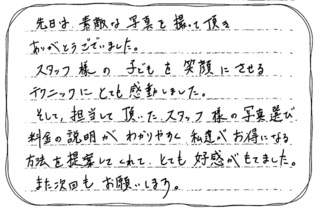 先日は、素敵な写真を撮って頂き
ありがとうございました。
スタッフ様の子どもを笑顔にさせる
テクニックにとても感動しました。
そして、担当して頂いたスタッフ様の写真選び
料金の説明がわかりやすく私達がお得になる
方法を提案してくれて、とても好感がもてました。
また次回もお願いします。